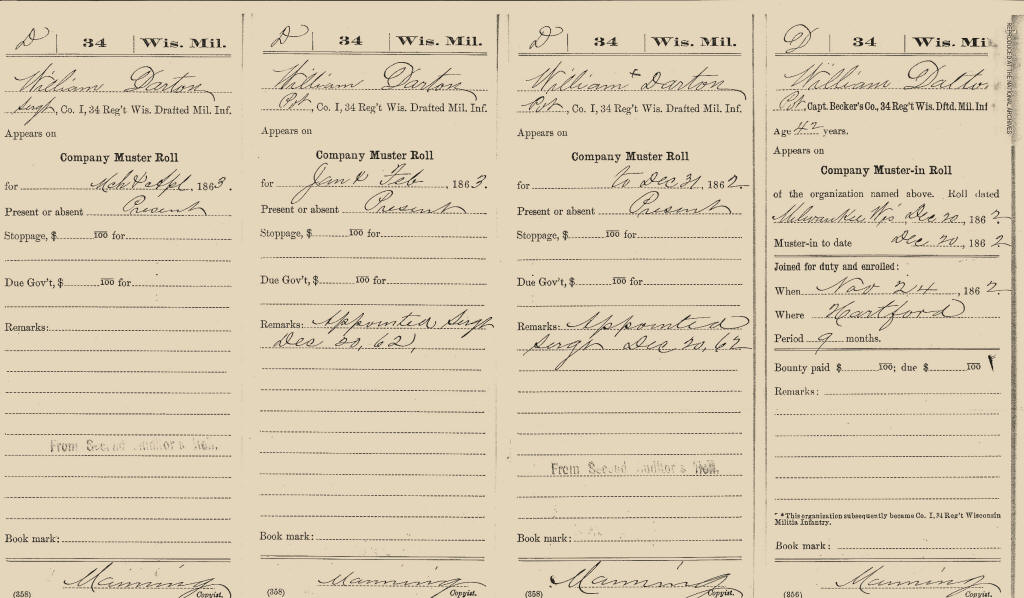 D | 34 | Wis. Mil.
William Darton
Sergt, Co. I, 34 Reg't Wis. Drafted Mil. Inf.
Appears on
Company Muster Roll
for Mch & Apl, 1863.
Present or absent Present
Stoppage, $ 100 for
Due Gov't, $ 100 for
Remarks:
From Second Auditor's Roll.
Book mark:
Manning
(358) Copyist.
D | 34 | Wis. Mil.
William Darton
Pvt, Co. I, 34 Reg't Wis. Drafted Mil. Inf.
Appears on
Company Muster Roll
for Jan & Feb, 1863.
Present or absent Present
Stoppage, $ 100 for
Due Gov't, $ 100 for
Remarks: Appointed Sergt
Dec 20, 62,
Book mark:
Manning
(358) Copyist.
D | 34 | Wis. Mil.
William + Darton
Pvt, Co. I, 34 Reg't Wis. Drafted Mil. Inf.
Appears on
Company Muster Roll
for to Dec 31, 1862.
Present or absent Present
Stoppage, $ 100 for
Due Gov't, $ 100 for
Remarks: Appointed
Sergt Dec 20, 62
From Second Auditor's Roll.
Book mark:
Manning
(358) Copyist.
D | 34 | Wis. Mi
William Dalton
Pvt. Capt. Becker's Co., 34 Reg't Wis. Dftd. Mil. Inf
Age 42 years.
Appears on
Company Muster-in Roll
of the organization named above. Roll dated
Milwaukee Wis, Dec 20, 1862.
Muster-in to date Dec 20, 1862
Joined for duty and enrolled:
When Nov 24, 1862.
Where Hartford
Period 9 months.
Bounty paid $ 100; due $ 100
Remarks:
*This organization subsequently became Co. I, 34 Reg't Wisconsin
Militia Infantry.
Book mark:
Manning
(356) Copyist.
REPRODUCED AT THE NATIONAL ARCHIVES